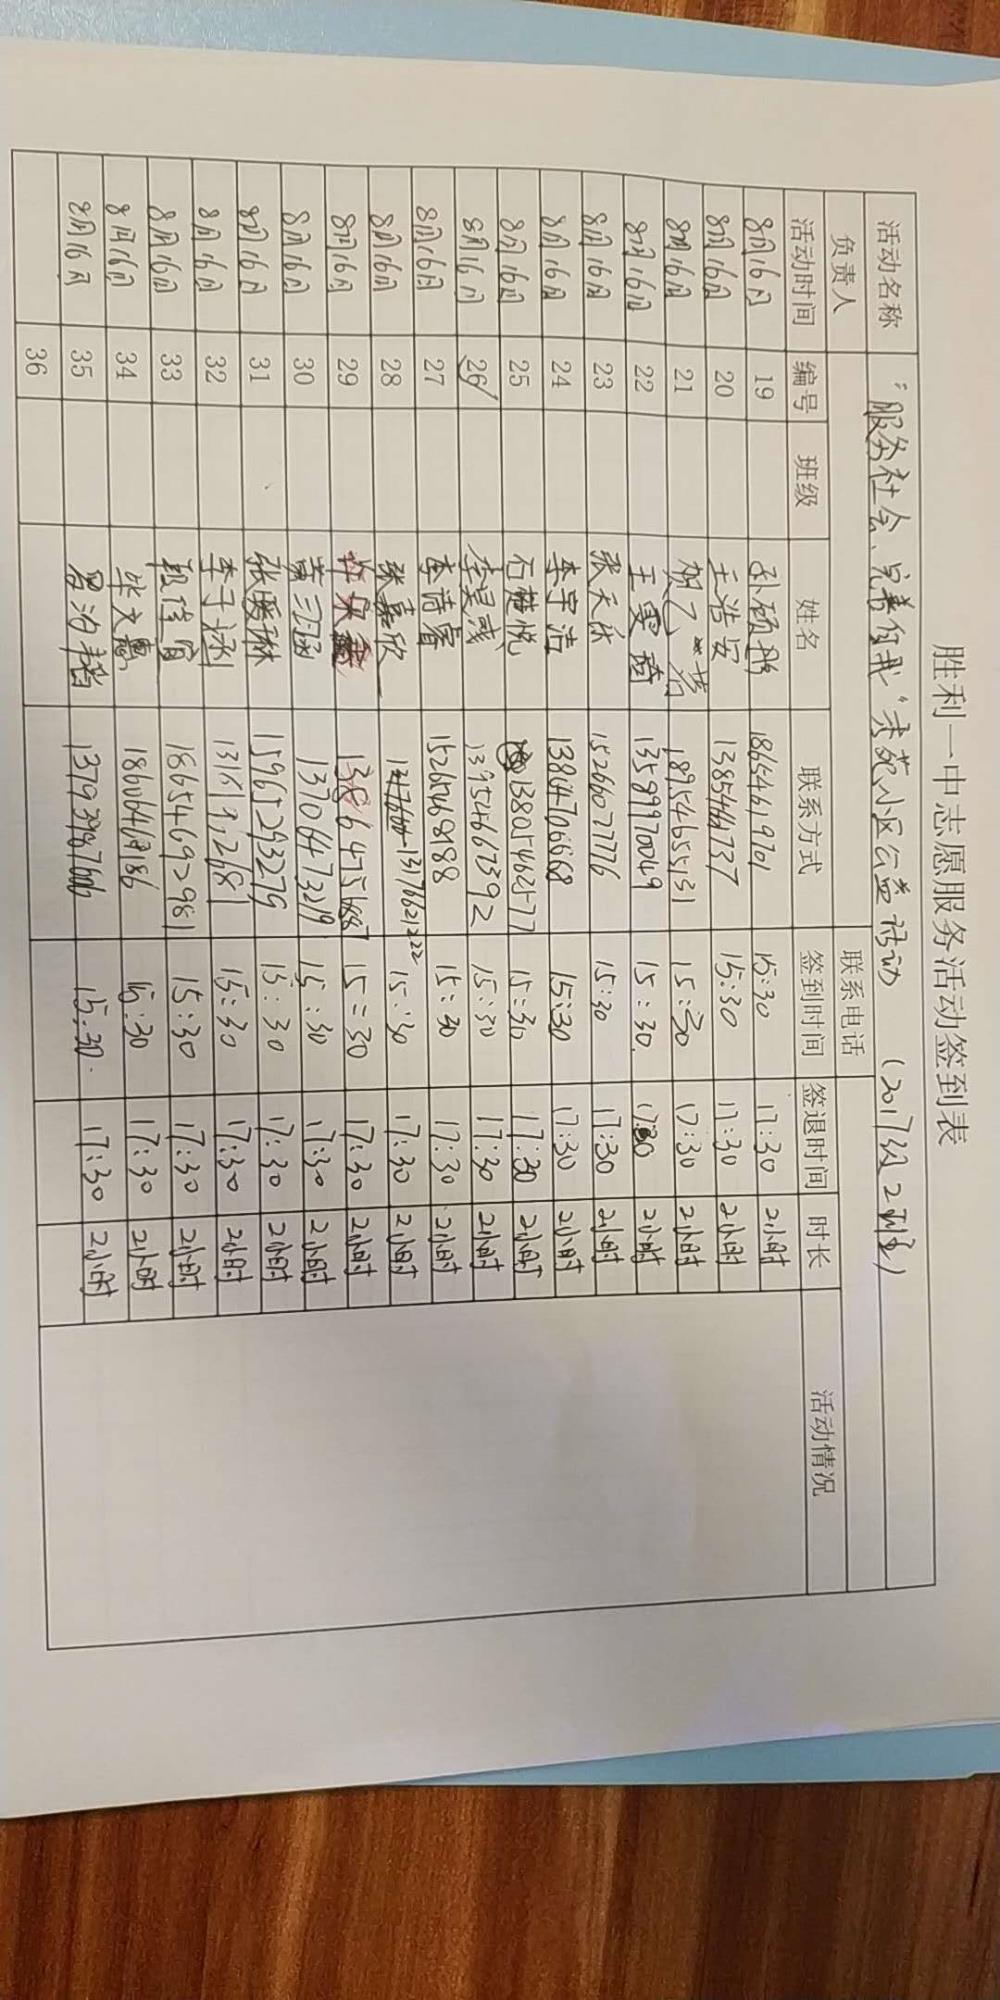 胜利一中志愿服务活动签到表
活动名称 "服务社会,完善自我"秀苑小区公益活动 (2017级2班)
负责人 联系电话
活动时间 编号 班级 姓名 联系方式 签到时间 签退时间 时长 活动情况
8月16日 19 孙硕彤 18654619701 15:30 17:30 2小时
8月16日 20 王浩安 13854661737 15:30 17:30 2小时
8月16日 21 18954655131 15:30 17:30 2小时
8月16日 22 王雯琦 13589970049 15:30 17:30 2小时
8月16日 23 张天依 15266077776 15:30 17:30 2小时
8月16日 24 李宇浩 13864706668 15:30 17:30 2小时
8月16日 25 石楚悦 13805462177 15:30 17:30 2小时
8月16日 26 李昊彧 13954667392 15:30 17:30 2小时
8月16日 27 李蒨睿 15265468188 15:30 17:30 2小时
8月16日 28 张嘉欣 13176621222 15:30 17:30 2小时
8月16日 29 15:30 17:30 2小时
8月16日 30 黄习涵 13106473219 15:30 17:30 2小时
8月16日 31 张媛林 15965293279 15:30 17:30 2小时
8月16日 32 李子涵 15:30 17:30 2小时
8月16日 33 18654692981 15:30 17:30 2小时
8月16日 34 毕文惠 15:30 17:30 2小时
8月16日 35 15:30 17:30 2小时
36